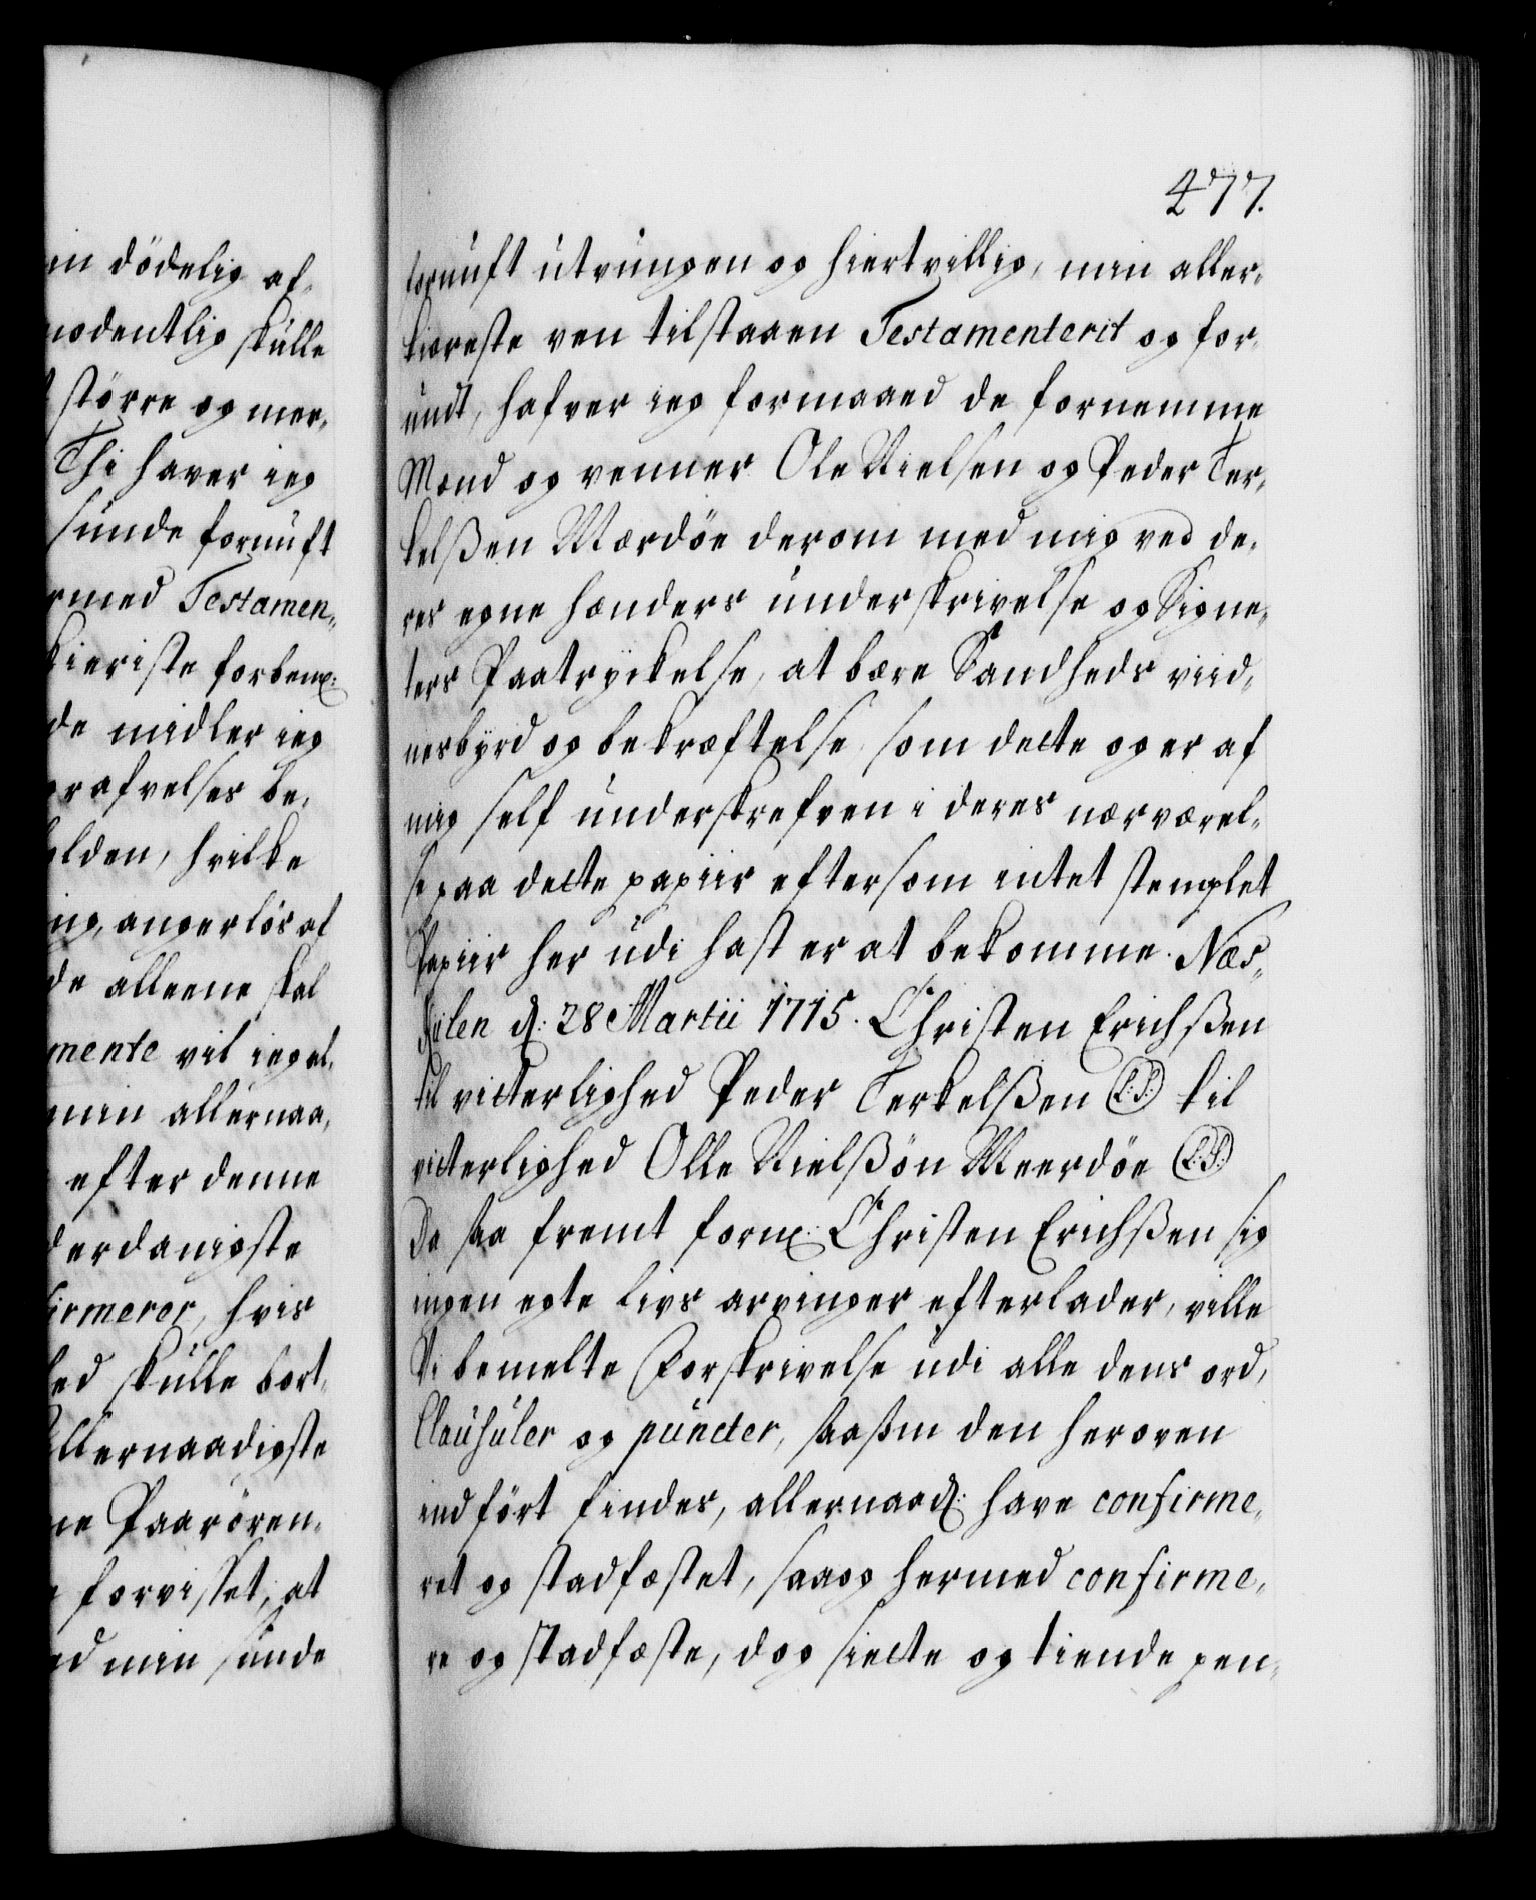 in dödelig af-
modentlig skulle
större og mee-
Thi haver ieg
sunde fornuft
rmed Testamen-
kieriste forbem:
de midler ieg
grafvelses be-
olden, hvilke
ing, angerlös af
de alleene skal
mente vil ieg al-
min allernaa-
efter denne
derdanigste
firmerer, hvis
hed skulle bort-
Allernaadigste
ne Paarören-
forvisset, at
ed min sunde
477.
fornuft utvungen og hiertvillig, min aller-
kiæreste ven tilstaaen Testamenterit og for-
undt, hafver ieg formaaed de fornemme
Mænd og venner Ole Nielsen og Peder Ter-
kelßen Mærdöe derom med mig ved de-
res egne hænders underskrivelse og Signe-
ters Paatryckelse, at bære Sandheds viid-
nesbyrd og bekræftelse, som dette og er af
mig self underskrefven i deres nærværel-
se paa dette papiir eftersom intet stemplet
Papiir her udi hast er at bekomme. Næs-
kilen d: 28 Martii 1715. Christen Erichßen
til vitterlighed Peder Terkelßen (L:S:) til
vitterlighed Olle Nielßön Meerdöe (L:S:)
Da saa fremt form: Christen Erichßen sig
ingen egte livs arvinger efterlader, ville
Vi bemelte Forskrivelse udi alle dens ord,
Clausuler og puncter, saasom den heroven
indfört findes, allernaad: have confirme-
ret og stadfæstet, saa og hermed confirme-
re og stadfæste, dog siette og tiende pen-